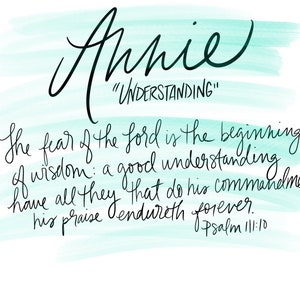 Annie
"UNDERSTANDING"
The fear of the Lord is the beginning
of wisdom: a good understanding
have all they that do his commandme
his praise endureth forever.
Psalm 111:10